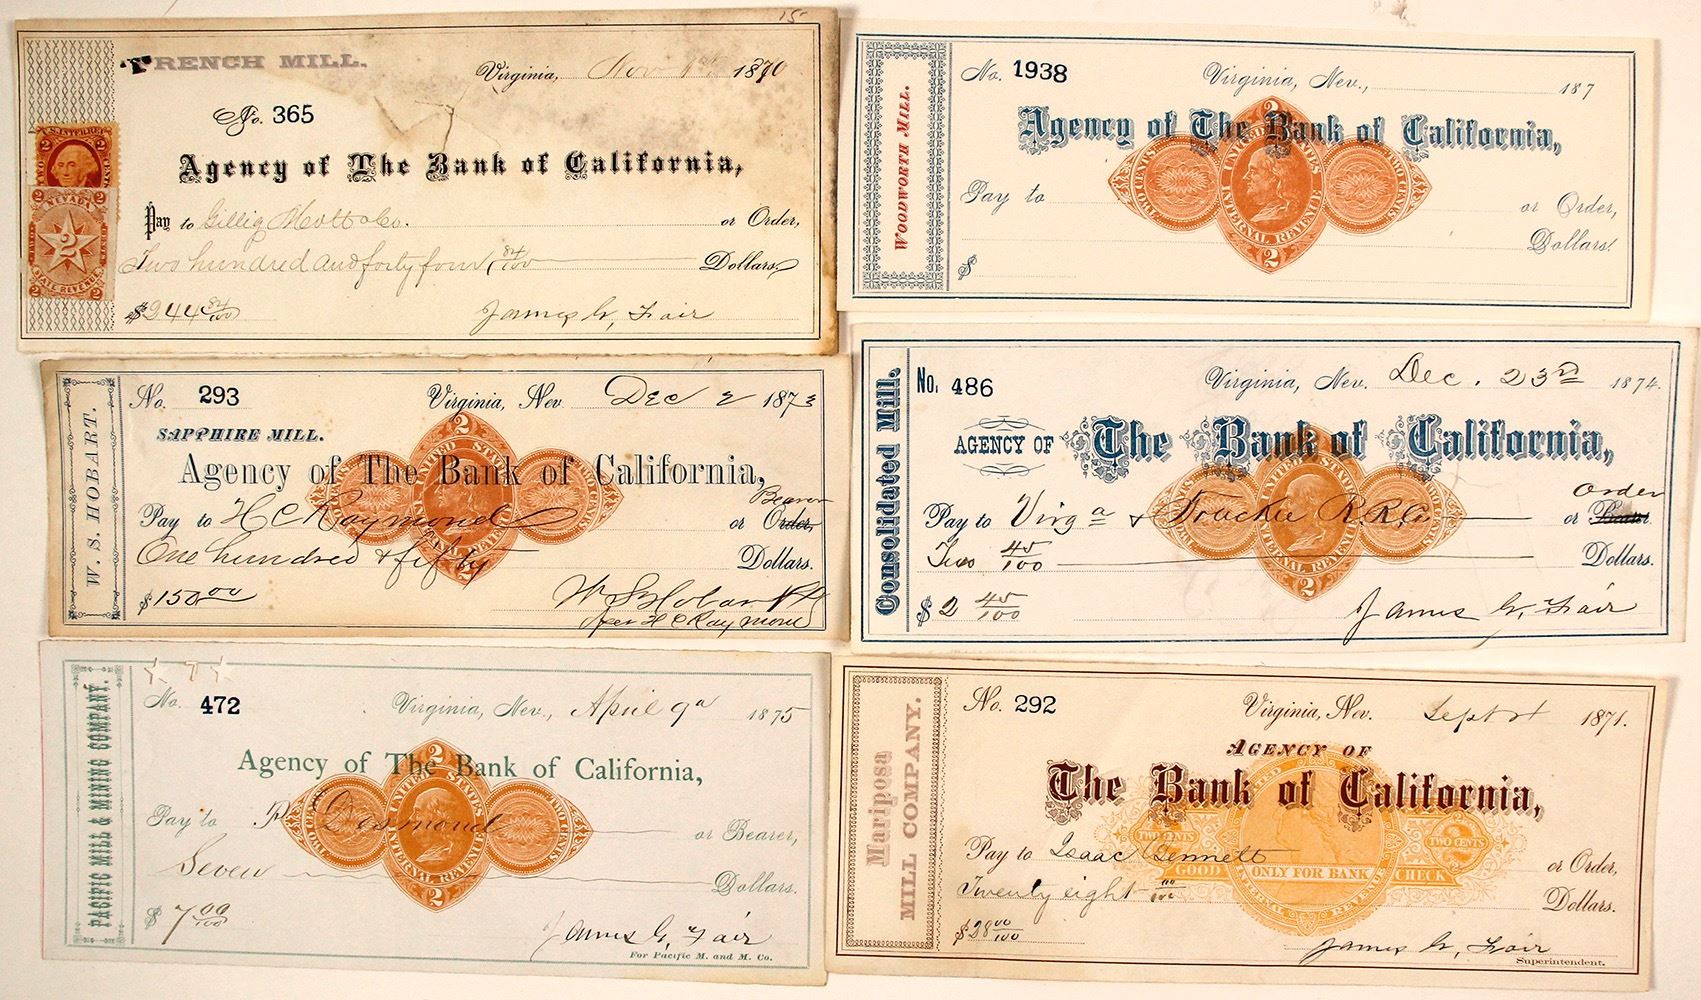 15
FRENCH MILL.
Virginia, Nov 1870
No. 365
Agency of The Bank of California,
Pay to Gillig Mott & Co. or Order,
Two hundred and forty four 84/100 Dollars
$244 84/100
James G. Fair
U.S. INTER. REV.
2 2
TWO CENTS
NEVADA
2 2
2
STATE REVENUE
2 2
WOODWORTH MILL.
No. 1938 Virginia, Nev., 187
Agency of The Bank of California,
Pay to or Order,
Dollars.
$
2
UNITED STATES
TWO CENTS
INTERNAL REVENUE
2
W. S. HOBART.
No. 293 Virginia, Nev. Dec 2 1873
SAPPHIRE MILL.
Agency of The Bank of California,
Bearer
Pay to H C Raymond or Order,
One hundred & fifty Dollars.
$150 00
W S Hobart
per H C Raymond
2
UNITED STATES
TWO CENTS
INTERNAL REVENUE
2
Consolidated Mill.
No. 486 Virginia, Nev. Dec. 23rd 1874.
AGENCY OF The Bank of California,
Order
Pay to Virga & Truckee R.R.Co or Bearer
Two 45/100 Dollars.
$2 45/100
James G. Fair
UNITED STATES
TWO CENTS
INTERNAL REVENUE
2
PACIFIC MILL & MINING COMPANY.
No. 472 Virginia, Nev., April 9th 1875
Agency of The Bank of California,
Pay to Desmond or Bearer,
Seven Dollars.
$7 00/100
James G. Fair
For Pacific M. and M. Co.
2
UNITED STATES
TWO CENTS
INTERNAL REVENUE
2
Mariposa
MILL COMPANY.
No. 292 Virginia, Nev. Sept 1871.
AGENCY OF
The Bank of California,
Pay to Isaac Bennett or Order,
Twenty eight 00/100 Dollars.
$28 00/100
James G. Fair
Superintendent.
UNITED
TWO CENTS TWO CENTS
GOOD ONLY FOR BANK CHECK
INTERNAL REVENUE